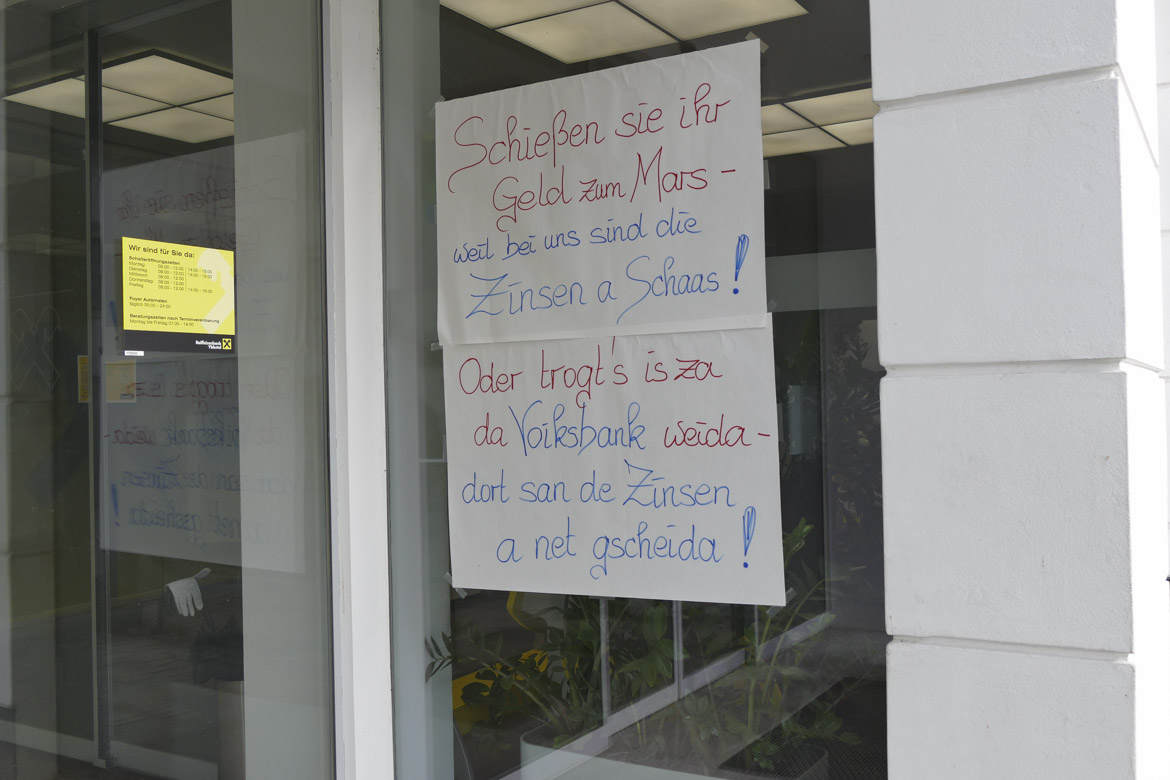 Schießen sie ihr
Geld zum Mars -
weil bei uns sind die
Zinsen a Schaas!
Oder trogt's is za
da Volksbank weida -
dort san de Zinsen
a net gscheida!
Wir sind für Sie da:
Schalteröffnungszeiten
Montag 08:00 - 12:00 | 14:00 - 16:00
Dienstag 08:00 - 12:00 | 14:00 - 16:00
Mittwoch 08:00 - 12:00
Donnerstag 08:00 - 12:00
Freitag 08:00 - 12:00 | 14:00 - 16:00
Foyer Automaten
täglich 06:00 - 24:00
Beratungszeiten nach Terminvereinbarung
Montag bis Freitag 07:00 - 19:00
Raiffeisenbank